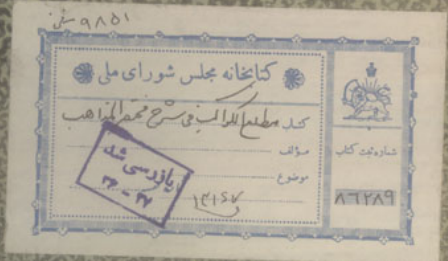 ۹۸۵۱
کتابخانه مجلس شورای ملی
کتاب مطلع الکواکب فی شرح
مؤلف
موضوع
شماره ثبت کتاب
۸۶۲۸۹
بازرسی شد